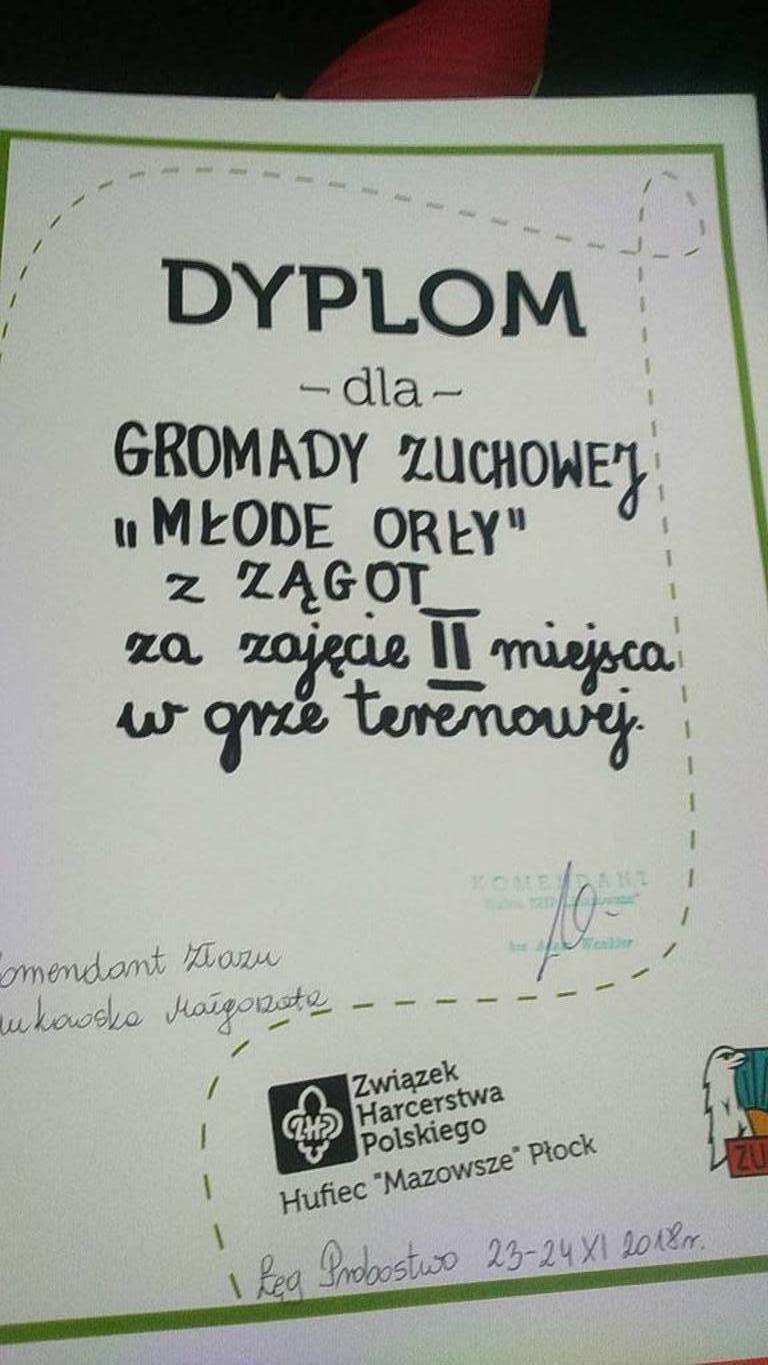 DYPLOM
~dla~
GROMADY ZUCHOWEJ
"MŁODE ORŁY"
z ZĄGOT
za zajęcie II miejsca
w grze terenowej.
KOMENDANT
omendant Złazu
ukowska Małgorzata
Związek
Harcerstwa
Polskiego
ZHP
Hufiec "Mazowsze" Płock
ZU
Łęg Probostwo 23-24 XI 2018r.